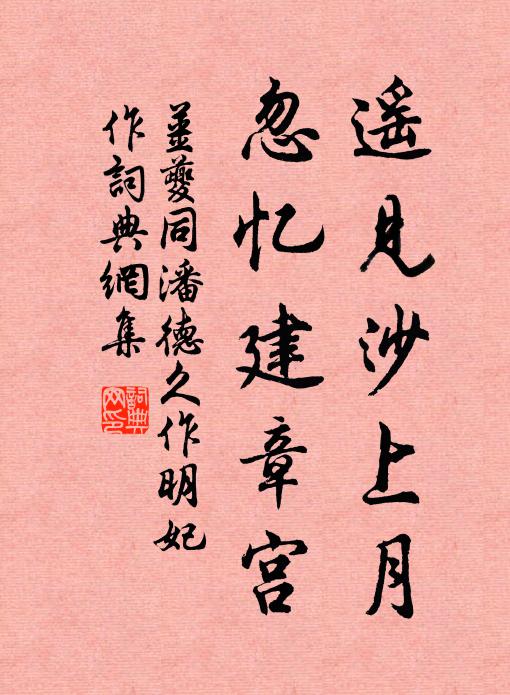 遥见沙上月
忽忆建章宫
姜夔同潘德久作明妃
作詞典網集
詞典
网印